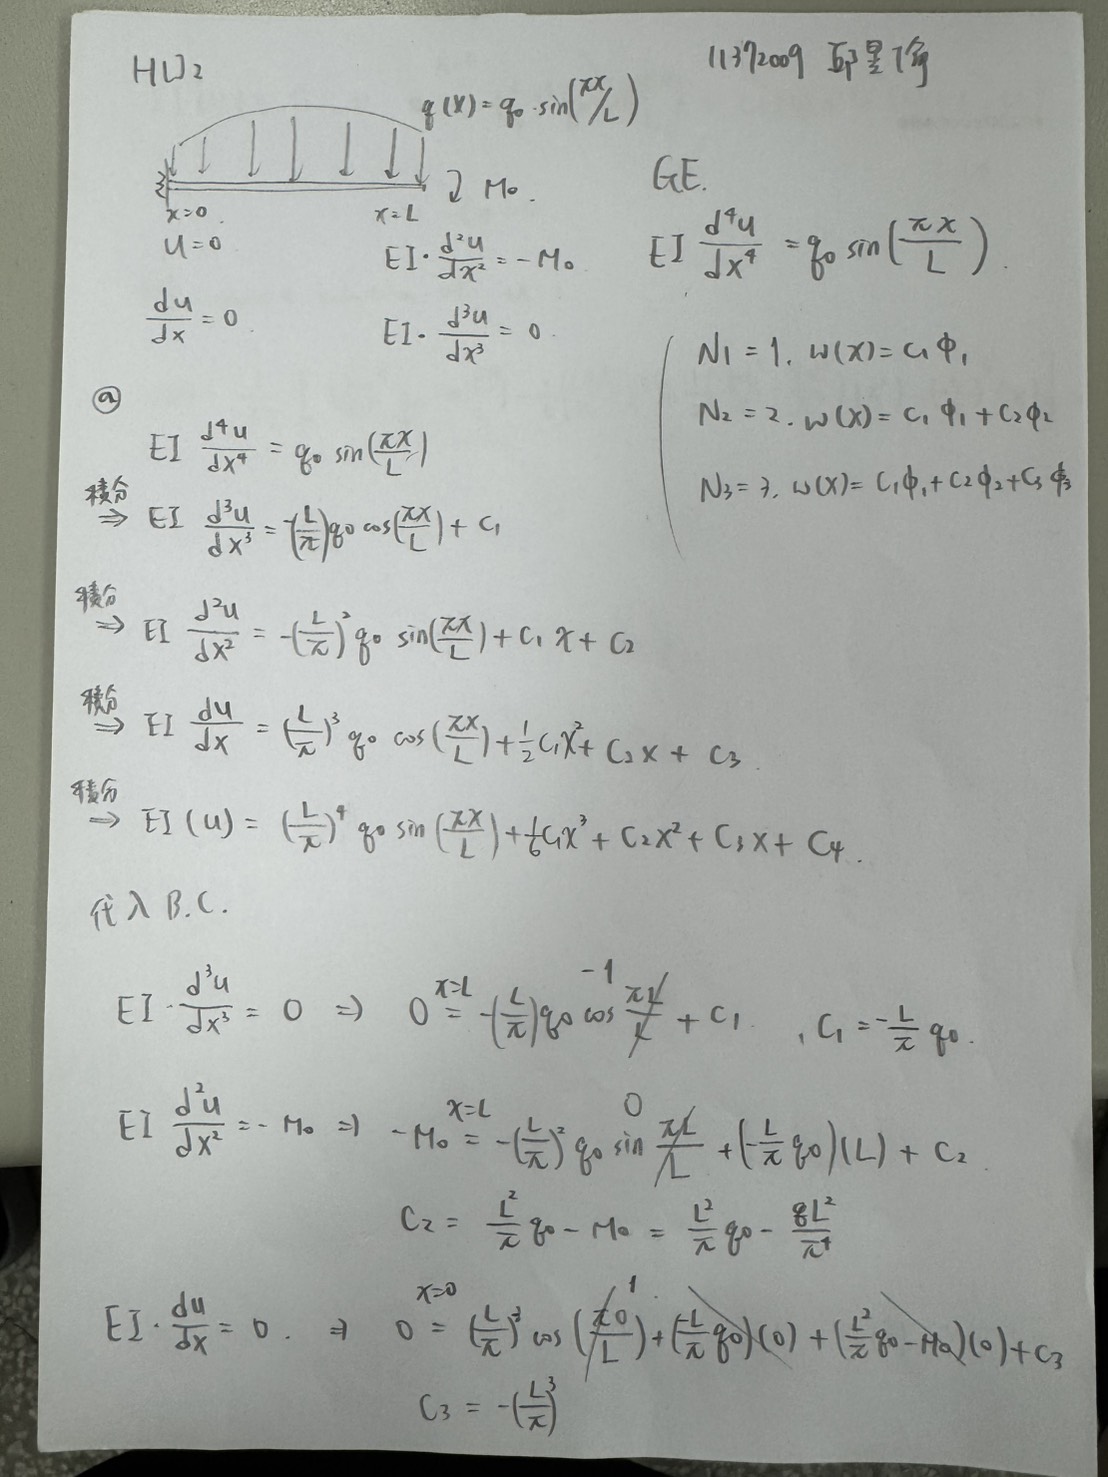 HW2
11372009 邱星
q(x)=q₀·sin(πx/L)
M₀.
x=0.
x=L
GE.
u=0
EI·d²u/dx² = -M₀
EI d⁴u/dx⁴ = q₀ sin(πx/L).
du/dx = 0
EI·d³u/dx³ = 0.
N1 = 1. w(x) = c₁ϕ₁
N2 = 2. w(x) = c₁ϕ₁+c₂ϕ₂
N3 = 3. w(x) = c₁ϕ₁+c₂ϕ₂+c₃ϕ₃
ⓐ
EI d⁴u/dx⁴ = q₀ sin(πx/L)
積分
⇒ EI d³u/dx³ = -(L/π)q₀ cos(πx/L) + c₁
積分
⇒ EI d²u/dx² = -(L/π)² q₀ sin(πx/L) + c₁x + c₂
積分
⇒ EI du/dx = (L/π)³ q₀ cos(πx/L) + ½c₁x² + c₂x + c₃
積分
⇒ EI(u) = (L/π)⁴ q₀ sin(πx/L) + 1/6 c₁x³ + c₂x² + c₃x + c₄.
代入 B.C.
EI·d³u/dx³ = 0 ⇒ 0 =(x=L) -(L/π)q₀ cos πL/L + c₁. -1 , c₁ = -L/π q₀.
EI d²u/dx² = -M₀ ⇒ -M₀ =(x=L) -(L/π)² q₀ sin πL/L + (-L/π q₀)(L) + c₂ 0
c₂ = L²/π q₀ - M₀ = L²/π q₀ - 8L²/π⁴
EI·du/dx = 0. ⇒ 0 =(x=0) (L/π)³ cos(π0/L) + (-L/π q₀)(0) + (L²/π q₀ - M₀)(0) + c₃ 1.
c₃ = -(L/π)³